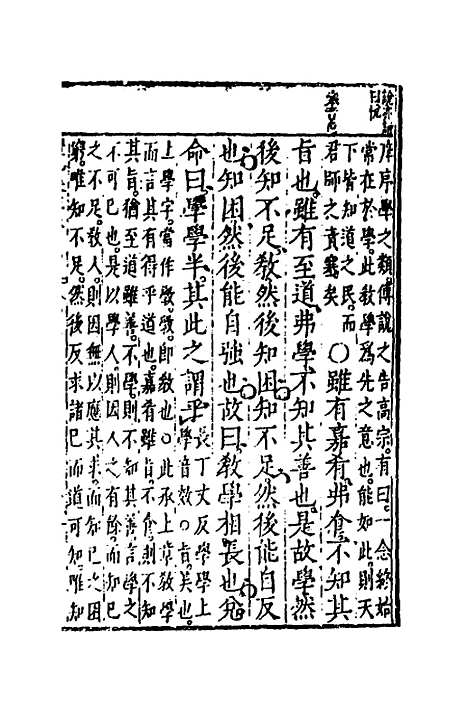 庠序學之類傅說之告高宗有曰一念終始
常在於學此教學爲先之意也能如此則天
下皆知道之民而
君師之責塞矣
○雖有嘉肴弗食不知其
旨也雖有至道弗學不知其善也是故學然
後知不足教然後知困知不足然後能自反
也知困然後能自強也故曰教學相長也兌
命曰學學半其此之謂乎
長丁丈反學學上
學音效○旨美也
上學字當作斆斆即教也○此承上章教學
而言其有得乎道也嘉肴雖旨不食則不知
其旨猶至道雖善不學則不知其善言學之
不可已也是以學人則因人之有餘而知己
之不足教人則因無以應其求而知己之困
窮唯知不足然後反求諸己而道可知唯知